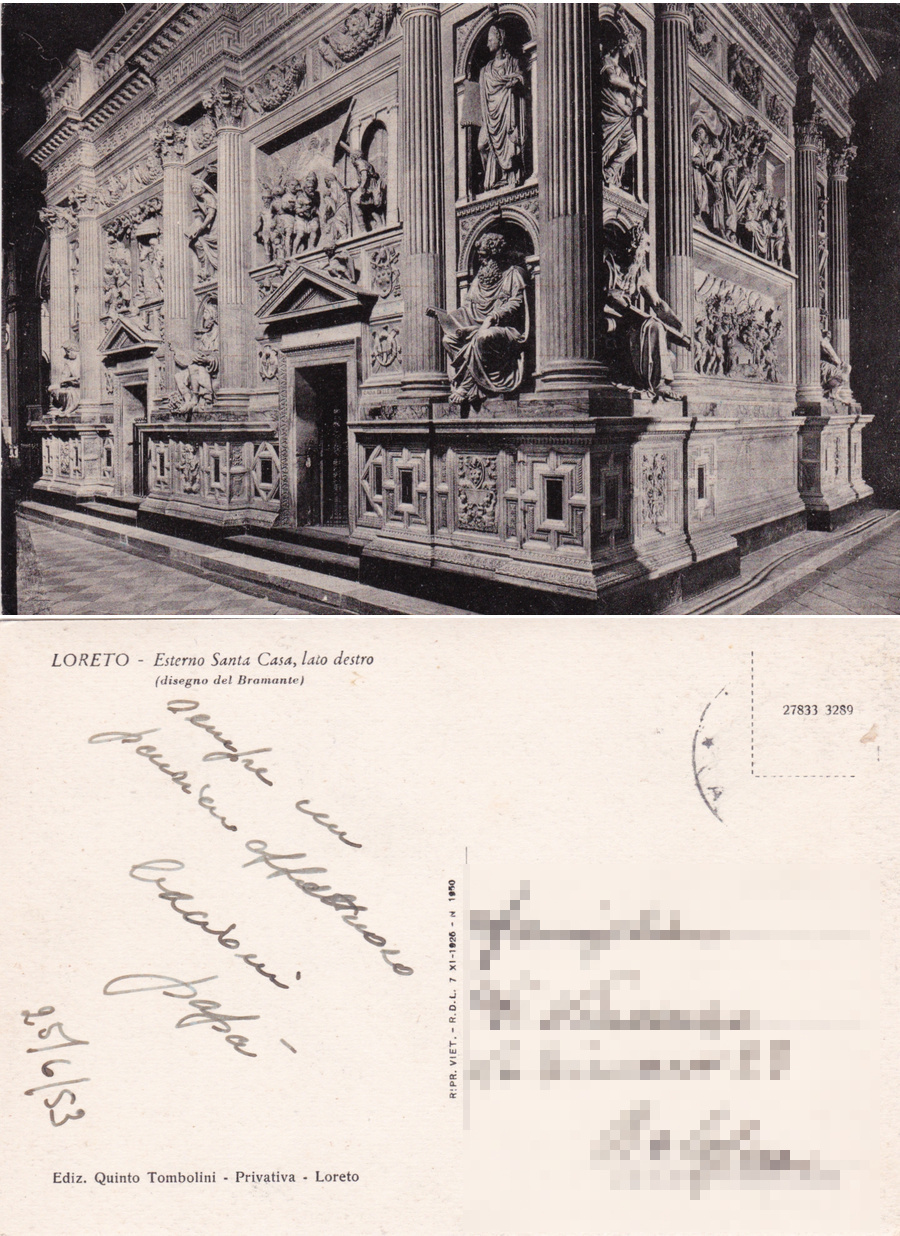 LORETO - Esterno Santa Casa, lato destro
(disegno del Bramante)
27833 3289
sempre un
pensiero affettuoso
bacioni
papà
25/6/53
RIPR. VIET. - R.D.L. 7 XI-1926 - N 1950
Ediz. Quinto Tombolini - Privativa - Loreto